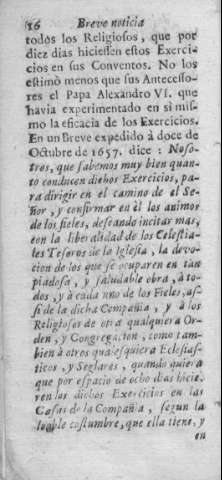 16 Breve noticia
todos los Religiosos, que por
diez dias hiciessen estos Exerci-
cios en sus Conventos. No los
estimò menos que sus Antecesso-
res el Papa Alexandro VI. que
havia experimentado en si mis-
mo la eficacia de los Exercicios.
En un Breve expedido à doce de
Octubre de 1657. dice : Noso-
tros, que sabemos muy bien quan-
to conducen dichos Exercicios, pa-
ra dirigir en el camino de el Se-
ñor, y confirmar en èl los animos
de los fieles, deseando incitar mas,
con la liberalidad de los Celestia-
les Tesoros de la Iglesia, la devo-
cion de los que se ocuparen en tan
piadosa, y saludable obra, à to-
dos, y à cada uno de los Fieles, as-
si de la dicha Compañia, y à los
Religiosos de otra qualquiera Or-
den, y Congregacion, como tam-
bien à otros qualesquiera Eclesias-
ticos, y Seglares, quando quiera
que por espacio de ocho dias hicie-
ren los dichos Exercicios en las
Casas de la Compañia, segun la
loable costumbre, que ella tiene, y
en